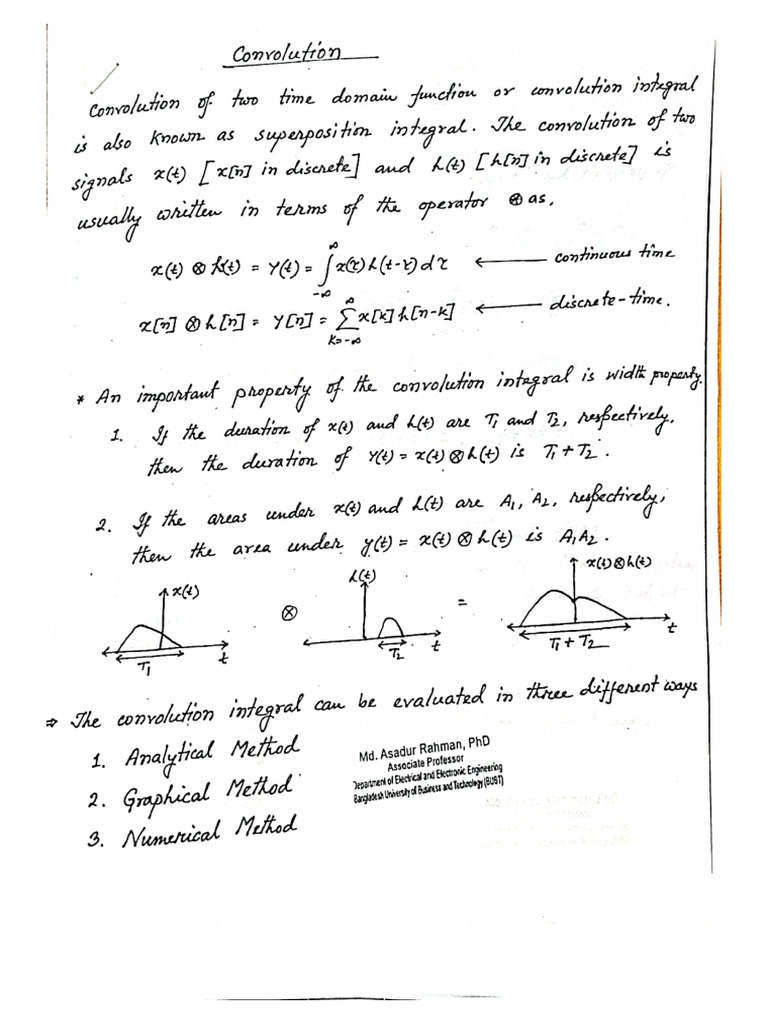 Convolution
Convolution of two time domain function or convolution integral
is also known as superposition integral. The convolution of two
signals x(t) [x[n] in discrete] and h(t) [h[n] in discrete] is
usually written in terms of the operator ⊗ as,
x(t) ⊗ h(t) = Y(t) = ∫_{-∞}^{∞} x(τ) h(t-τ) dτ ← continuous time
x[n] ⊗ h[n] = Y[n] = ∑_{k=-∞}^{∞} x[k] h[n-k] ← discrete-time.
* An important property of the convolution integral is width property.
1. If the duration of x(t) and h(t) are T1 and T2, respectively,
then the duration of Y(t) = x(t) ⊗ h(t) is T1 + T2.
2. If the areas under x(t) and h(t) are A1, A2, respectively,
then the area under y(t) = x(t) ⊗ h(t) is A1A2.
x(t) h(t) x(t) ⊗ h(t)
⊗ =
T1 t T2 t T1 + T2 t
⇒ The convolution integral can be evaluated in three different ways
1. Analytical Method
2. Graphical Method
3. Numerical Method
Md. Asadur Rahman, PhD
Associate Professor
Department of Electrical and Electronic Engineering
Bangladesh University of Business and Technology (BUBT)